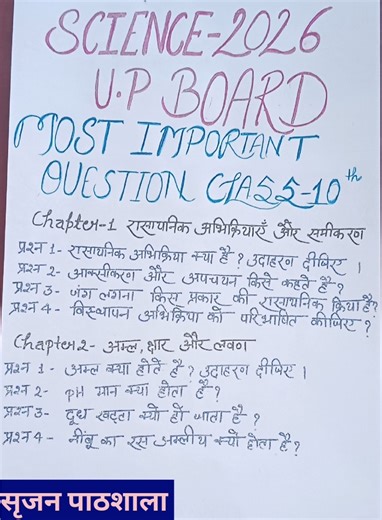 SCIENCE-2026
U.P BOARD
MOST IMPORTANT
QUESTION CLASS-10th
Chapter-1 रासायनिक अभिक्रियाएँ और समीकरण
प्रश्न 1- रासायनिक अभिक्रिया क्या है? उदाहरण दीजिए।
प्रश्न 2- आक्सीकरण और अपचयन किसे कहते है?
प्रश्न 3- जंग लगना किस प्रकार की रासायनिक क्रिया है?
प्रश्न 4- विस्थापन अभिक्रिया को परिभाषित कीजिए?
Chapter 2- अम्ल, क्षार और लवण
प्रश्न 1- अम्ल क्या होते है? उदाहरण दीजिए।
प्रश्न 2- pH मान क्या होता है?
प्रश्न 3- दूध खट्टा क्यों हो जाता है?
प्रश्न 4- नींबू का रस अम्लीय क्यों होता है?
सृजन पाठशाला